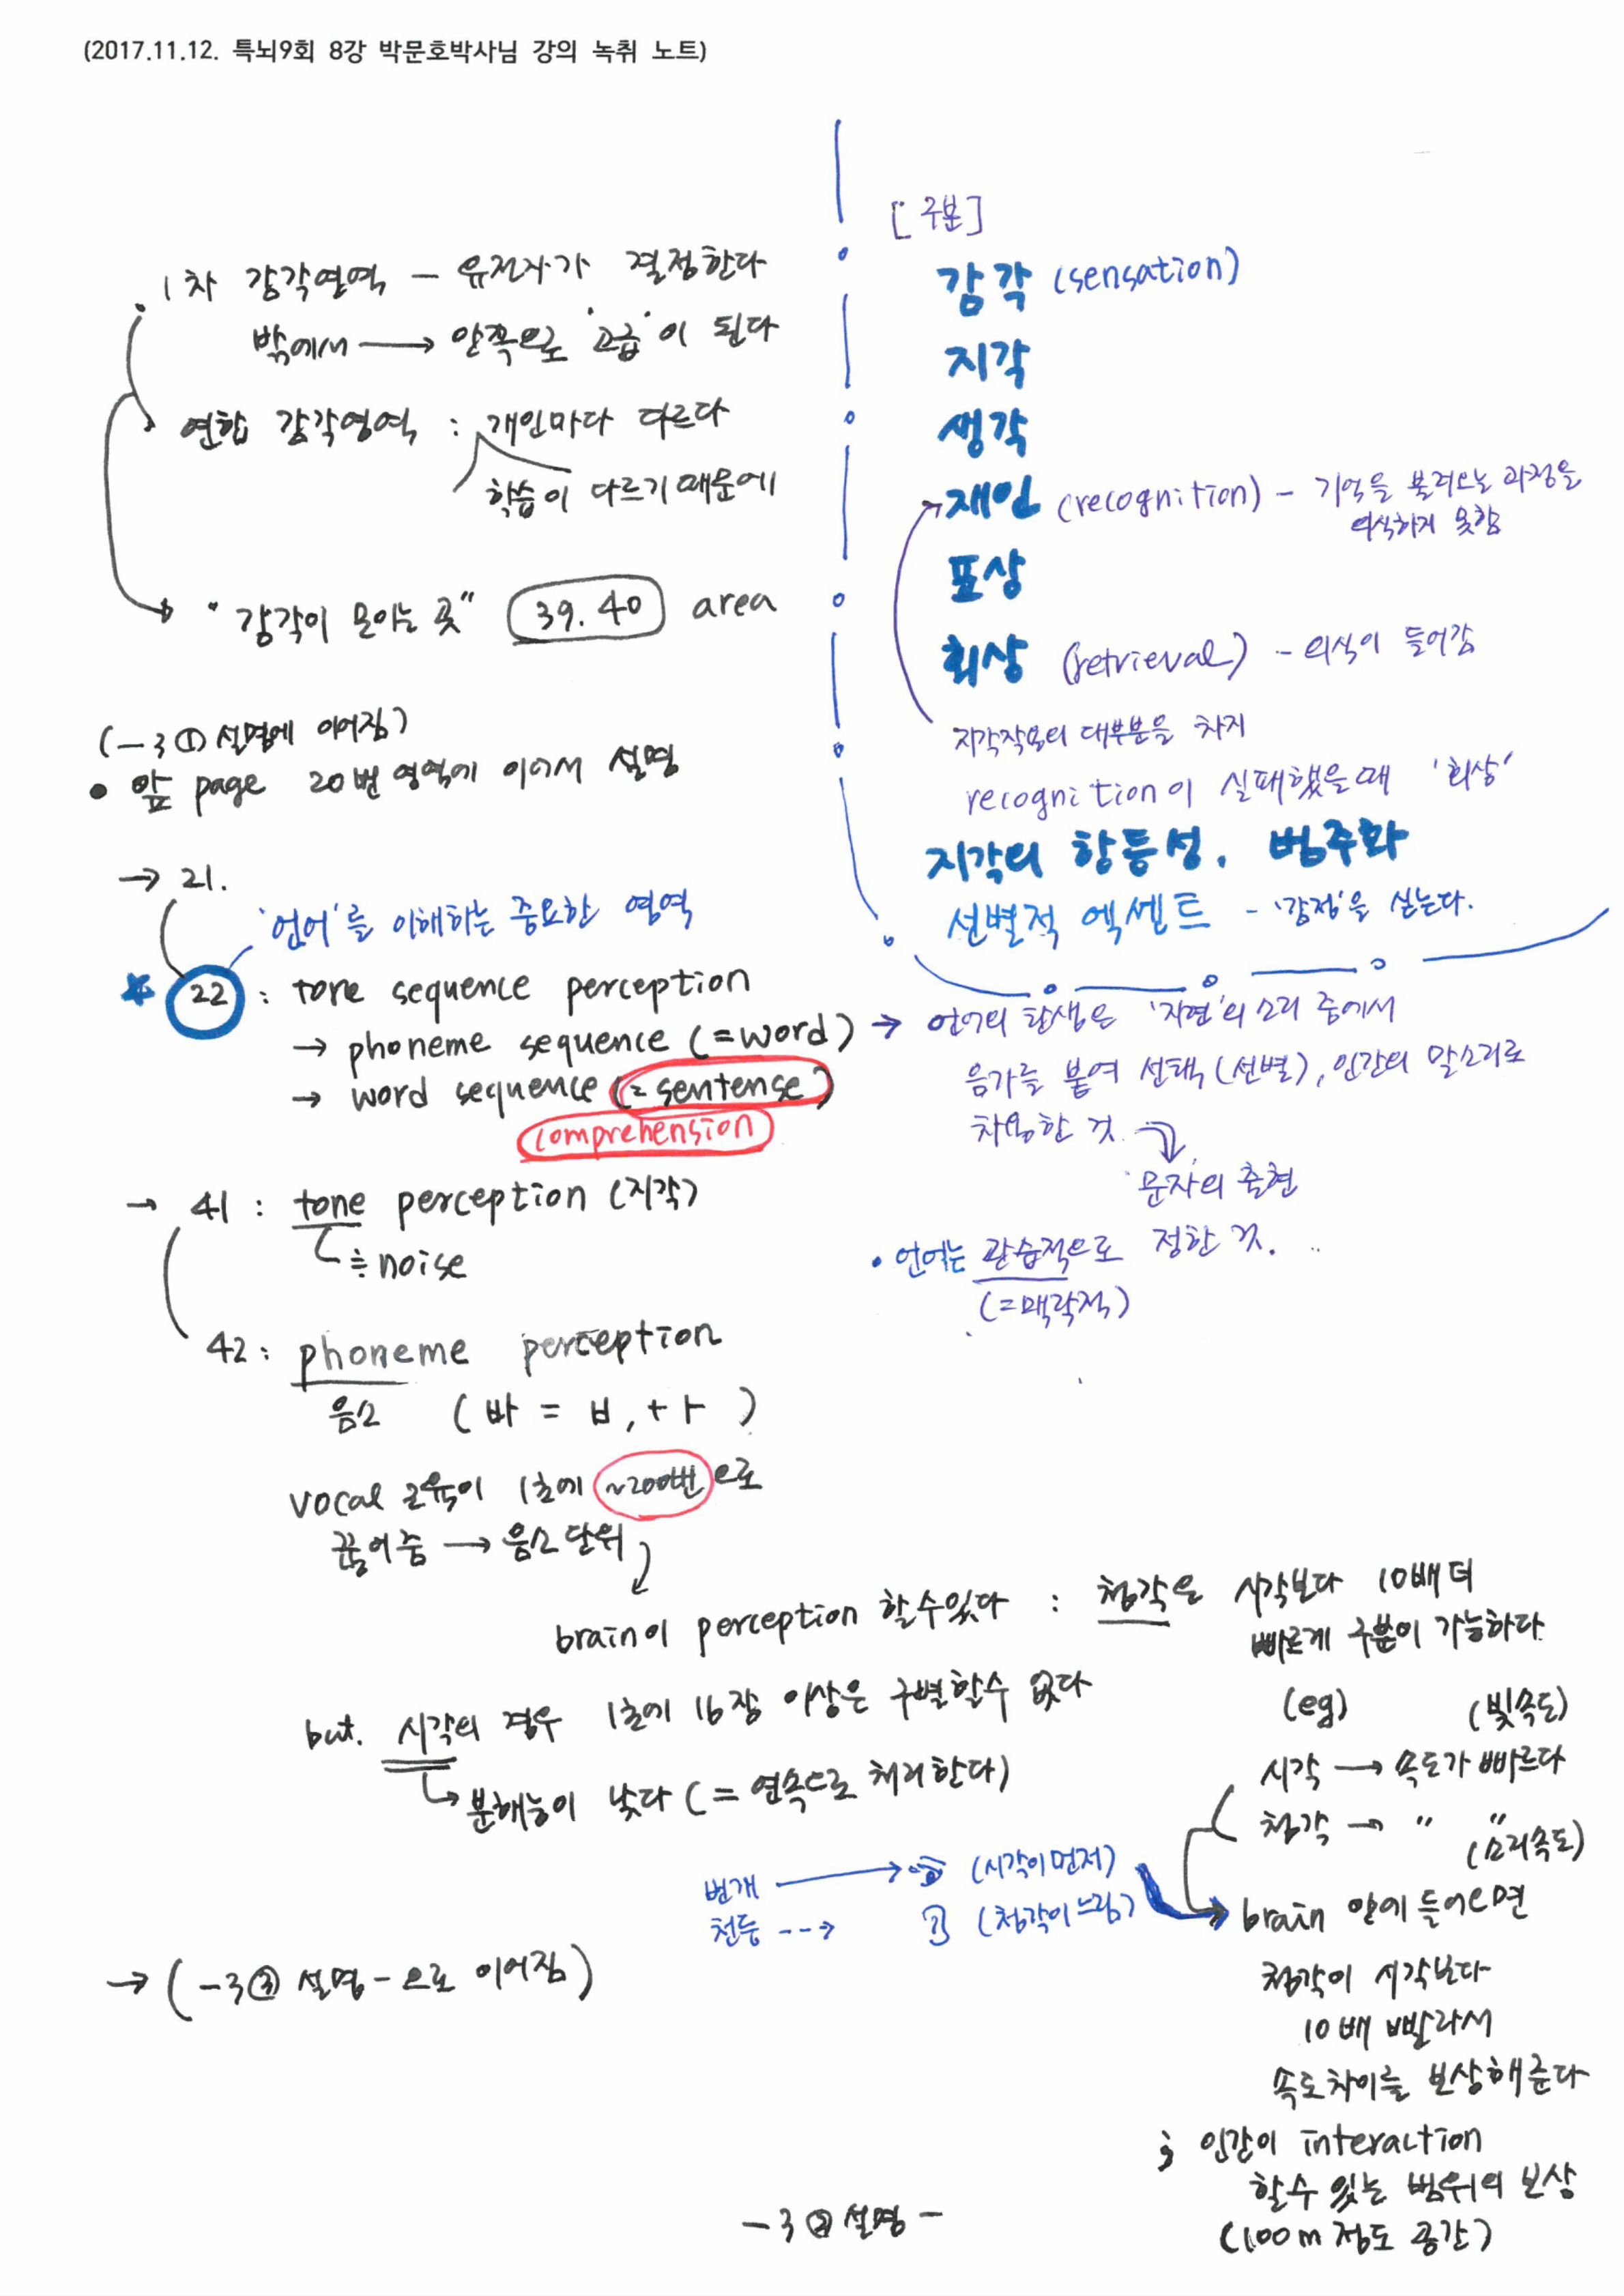 (2017.11.12. 특뇌9회 8강 박문호박사님 강의 녹취 노트)
• 1차 감각영역 – 유전자가 결정한다
밖에서 → 안쪽으로 '고급'이 된다
연합 감각영역 : 개인마다 다르다
학습이 다르기 때문에
"감각이 모이는 곳" 39. 40 area
(-3① 설명에 이어짐)
• 앞 page 20번 영역에 이어서 설명
→ 21.
'언어'를 이해하는 중요한 영역
★ 22 : tone sequence perception
→ phoneme sequence (=word)
→ word sequence (=sentense)
comprehension
→ 41 : tone perception (지각)
≒ noise
42 : phoneme perception
음소 (바 = ㅂ, + ㅏ )
vocal 근육이 1초에 ~200번으로
끊어줌 → 음소단위
brain이 perception 할수있다 : 청각은 시각보다 10배 더
빠르게 구분이 가능하다.
but. 시각의 경우 1초에 16장 이상은 구별할수 없다
↳ 분해능이 낮다 (= 연속으로 처리한다)
번개 → (시각이 먼저)
천둥 --→ (청각이 느림)
→ (-3③ 설명 - 으로 이어짐)
[구분]
감각 (sensation)
지각
생각
재인 (recognition) – 기억을 불러오는 과정을
의식하지 못함
표상
회상 (retrieval) – 의식이 들어감
지각작용의 대부분을 차지
recognition이 실패했을때 '회상'
지각의 항등성, 범주화
선별적 엑센트 – '감정'을 싣는다.
→ 언어의 탄생은 '자연'의 소리 중에서
음가를 붙여 선택(선별), 인간의 말소리로
차용한 것.
문자의 출현
• 언어는 관습적으로 정한 것.
(=맥락적)
(eg) (빛속도)
시각 → 속도가 빠르다
청각 → " "
(소리속도)
brain 안에 들어오면
청각이 시각보다
10배 빨라서
속도차이를 보상해준다
; 인간이 interaction
할수 있는 범위의 보상
(100m 정도 공간)
-3② 설명-